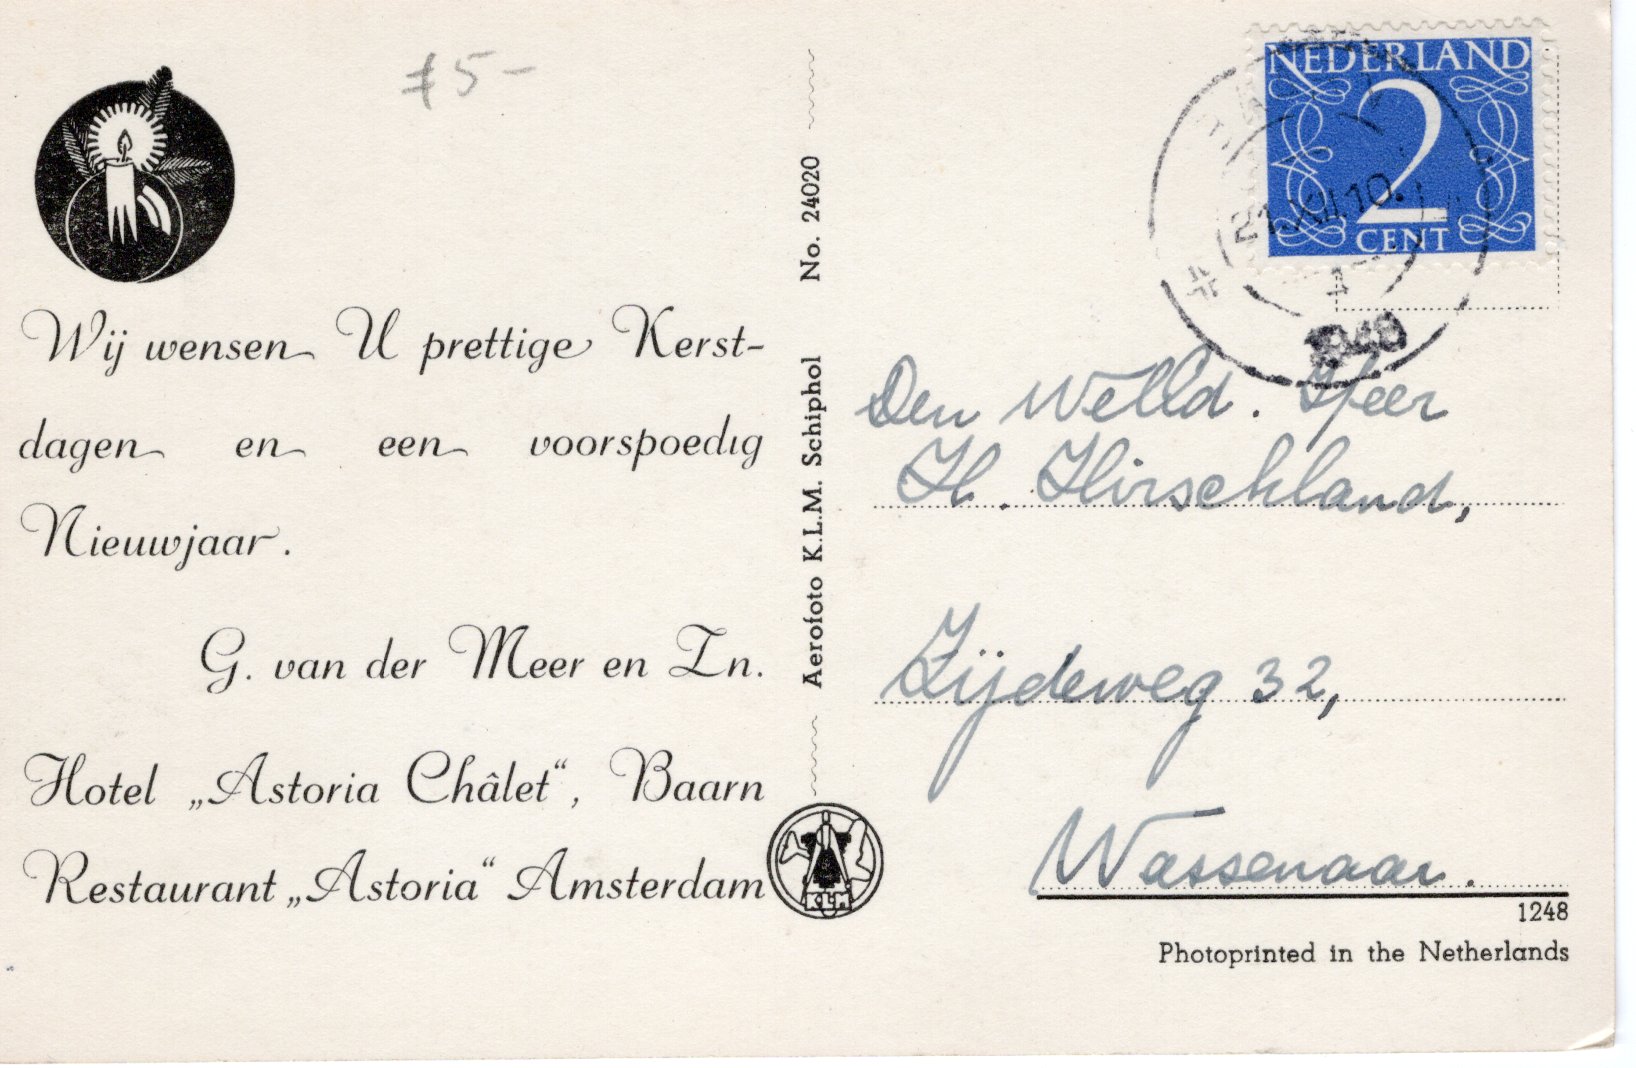 75-
Wij wensen U prettige Kerst-
dagen en een voorspoedig
Nieuwjaar.
G. van der Meer en Zn.
Hotel „Astoria Châlet“, Baarn
Restaurant „Astoria“ Amsterdam
Aerofoto K.L.M. Schiphol No. 24020
KLM
NEDERLAND
2
CENT
21.XII.10.
1948
Den WelEd. Heer
H. Hirschland,
Zijdeweg 32,
Wassenaar.
1248
Photoprinted in the Netherlands